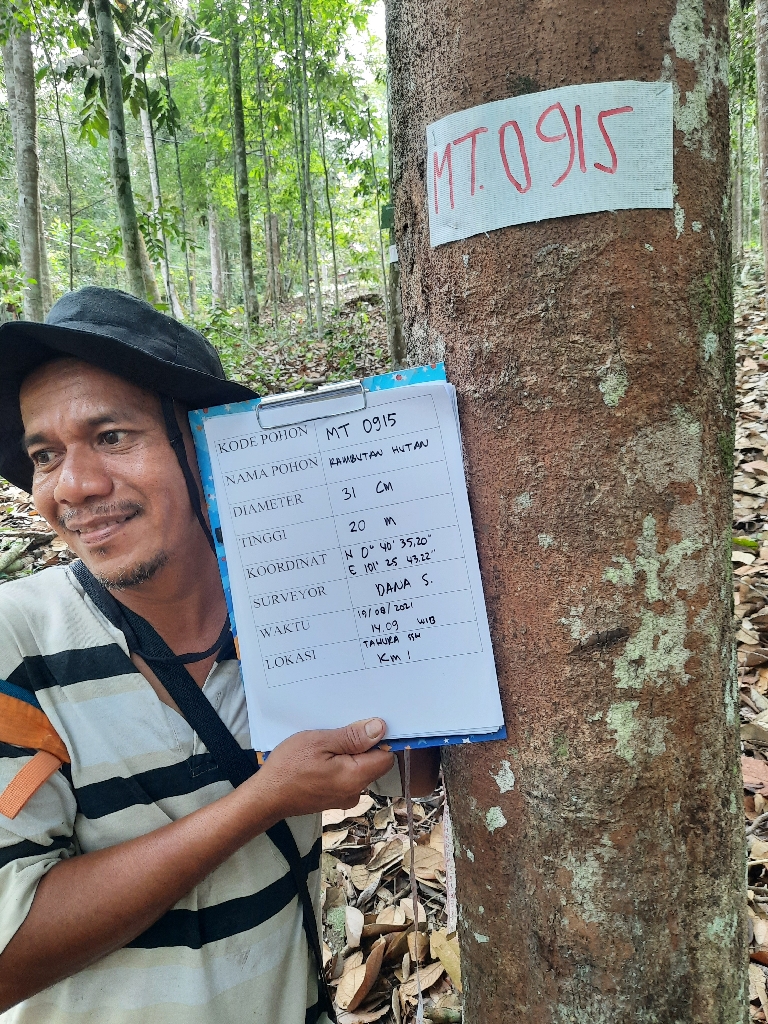 MT. 0915
KODE POHON MT 0915
NAMA POHON RAMBUTAN HUTAN
DIAMETER 31 CM
TINGGI 20 M
KOORDINAT N 0° 40' 35,20"
E 101° 25' 43.22"
SURVEYOR DANA S.
WAKTU 19/08/2021
14.09 WIB
LOKASI TAHURA SSH
KM 1